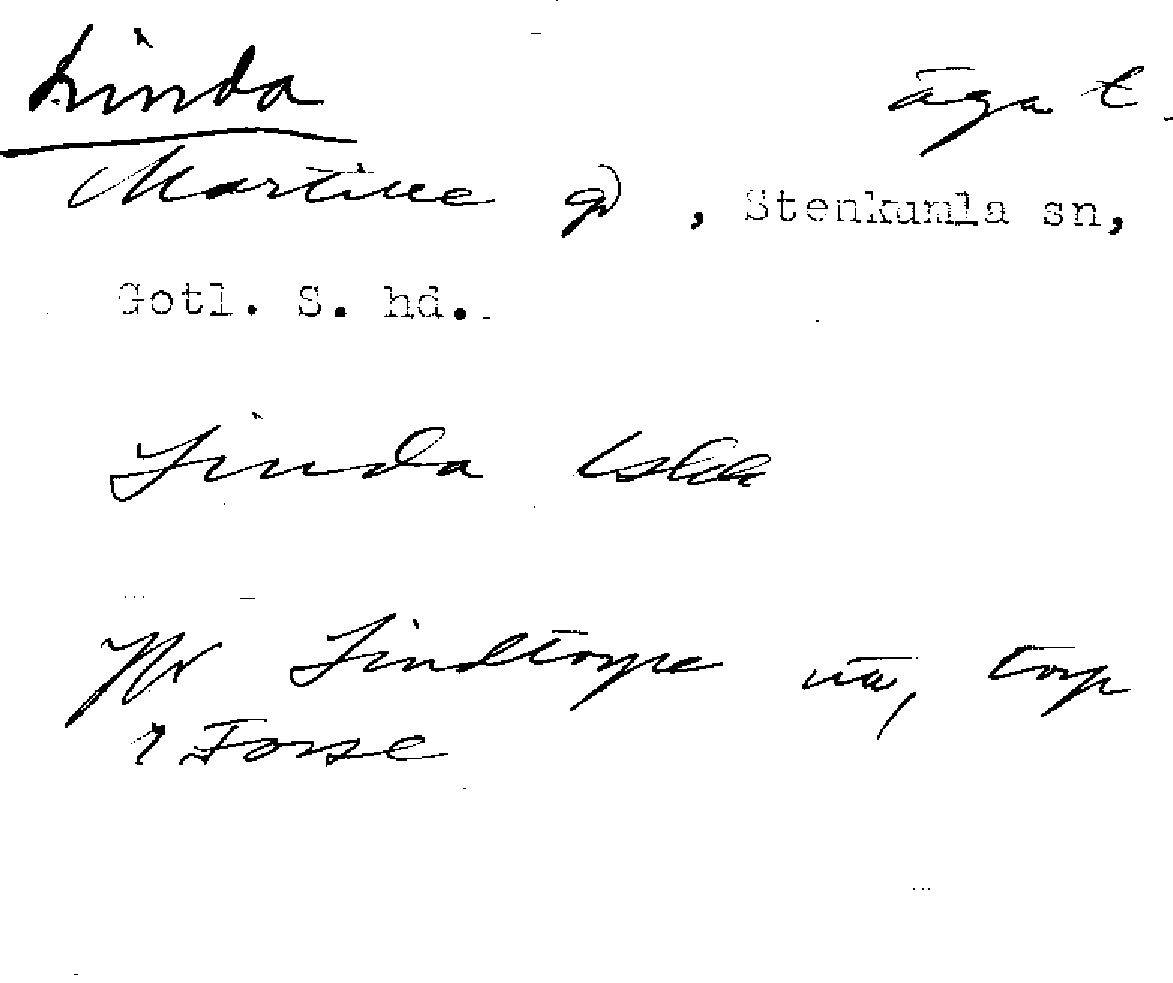 Linda äga t.
Martille gd , Stenkumla sn,
Gotl. S. hd.
Linda
Jfr Lindtorpe nä, torp
i Forse